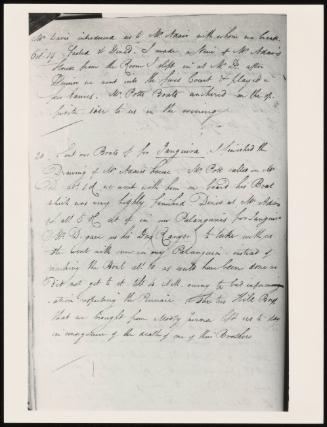 Mr Davis introduced us to Mr Adair with whom we break-
Oct. 19. fasted & Dined. I made a View of Mr Adair's
House from the Room I slept in at Mr D. after
Dinner we went into the fives Court & played a
few Games. Mr Potts Boats anchored on the op-
posite side to us in the evening
20. Sent our Boats off for Janguira. I finished the
Drawing of Mr Adairs house. Mr Pott called on Mr
D. at & we went with him on board his Boat
which was very highly finished Dined at Mr Adairs
at 5 set off in our Palanquins for Janguira
Mr D. gave us his Dog (Ranger) to take with us
He went with me in my Palanquin instead of
reaching the Boat at to as might have been done we
Did not get to it till owing to bad inform-
ation respecting the The two Hill Boys
that we brought from left us to day
in consequence of the death of one of their Brothers